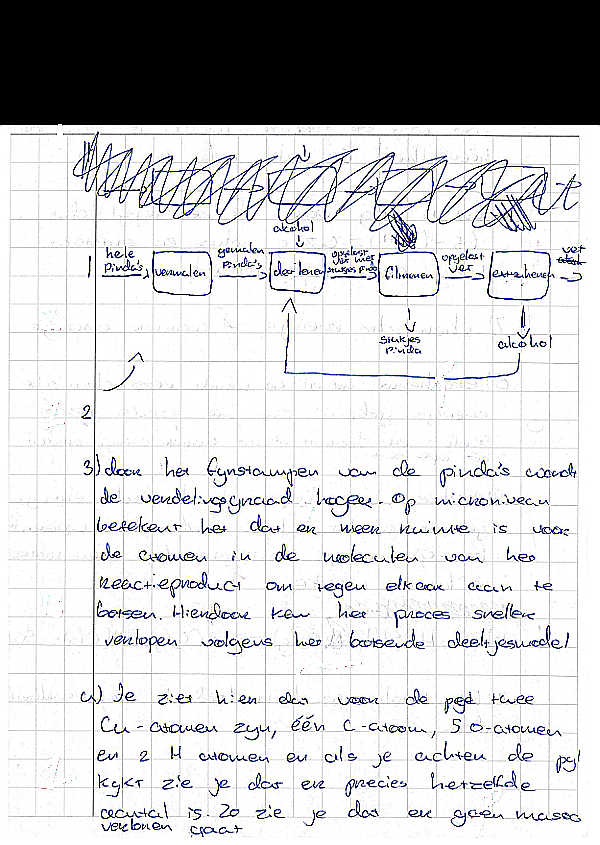 alcohol
1 hele pinda's vermalen gemalen pinda's opgelost vet met stukjes pinda filtreren opgelost vet vet
stukjes pinda
alcohol
2
3) door het fynstampen van de pinda's wordt
de verdelingsgraad hoger. Op microniveau
betekent het dat er meer ruimte is voor
de atomen in de moleculen van het
reactieproduct om tegen elkaar aan te
botsen. Hierdoor kan het proces sneller
verlopen volgens het botsende deeltjesmodel
4) Je ziet hier dat voor de pyl twee
Cu-atomen zyn, één C-atoom, 5 O-atomen
en 2 H atomen en als je achter de pyl
kykt zie je dat er precies hetzelfde
aantal is. Zo zie je dat er geen massa
verloren gaat